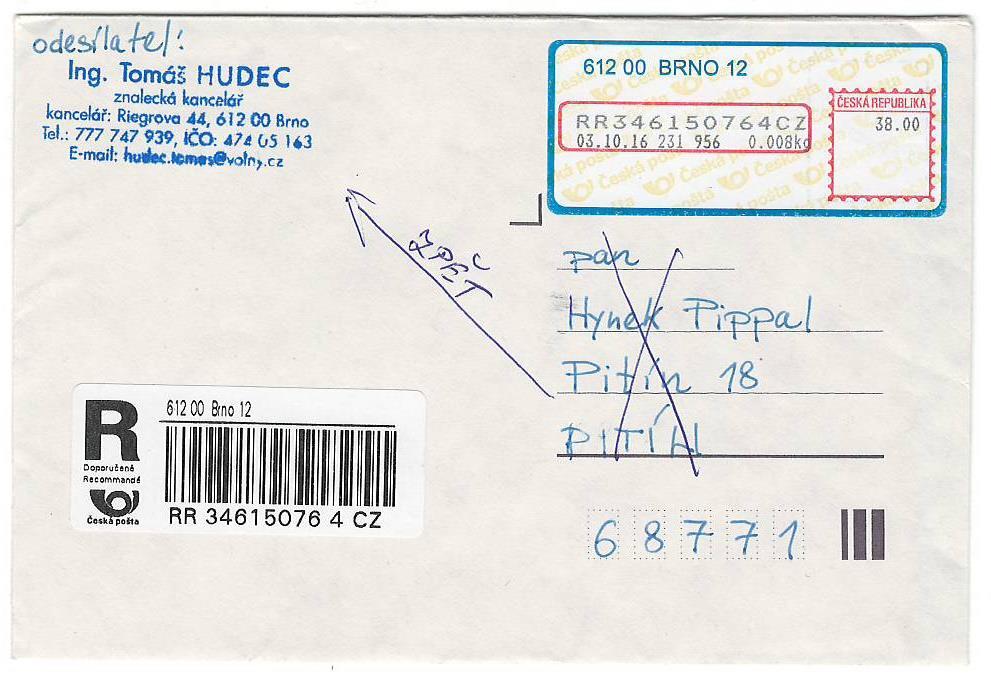 odesílatel:
Ing. Tomáš HUDEC
znalecká kancelář
kancelář: Riegrova 44, 612 00 Brno
Tel.: 777 747 939, IČO: 474 05 163
E-mail: hudec.tomas@volny.cz
612 00 BRNO 12
RR346150764CZ
03.10.16 231 956 0.008kg
ČESKÁ REPUBLIKA
38.00
ZPĚT
pan
Hynek Pippal
Pitín 18
PITÍN
68771
R
Doporučeně
Recommandé
Česká pošta
612 00 Brno 12
RR 34615076 4 CZ